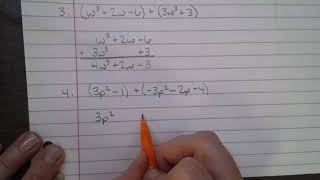 3. (w³+2w-6)+(3w³+3)
w³+2w-6
+ 3w³ +3
4w³+2w-3
4. (3p²-1)+(-3p²-2p-4)
3p²